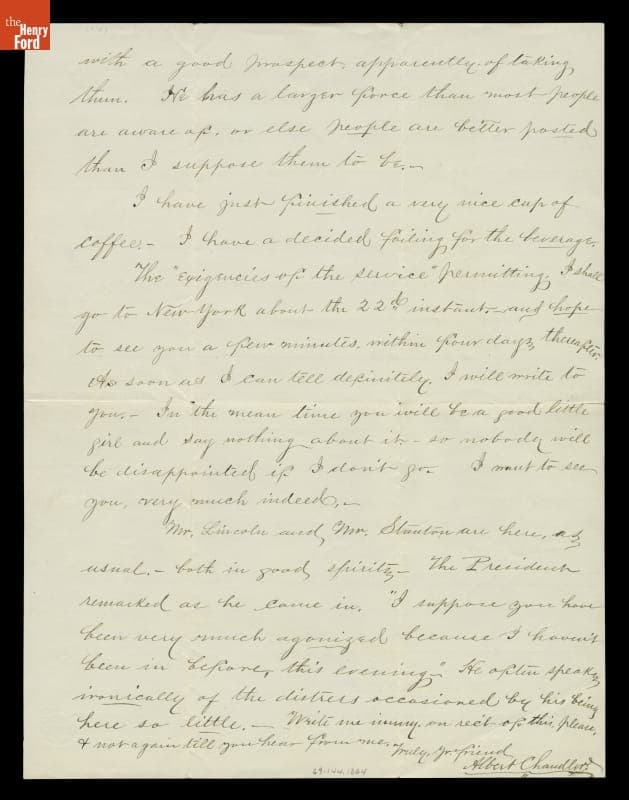 the
Henry
Ford
with a good prospect, apparently, of taking
them. He has a larger force than most people
are aware of, or else people are better posted
than I suppose them to be.—
I have just finished a very nice cup of
coffee.— I have a decided failing for the beverage.
The "exigencies of the service" permitting, I shall
go to New York about the 22d instant.— and hope
to see you a few minutes, within four days, thereafter.
As soon as I can tell definitely, I will write to
you.— In the mean time you will be a good little
girl and say nothing about it — so nobody will
be disappointed if I don't go. I want to see
you, very much indeed.—
Mr. Lincoln and Mr. Stanton are here, as
usual.— both in good spirits.— The President
remarked as he came in. "I suppose you have
been very much agonized because I haven't
been in before, this evening." He often speaks
ironically of the distress occasioned by his being
here so little.— Write me on rec't of this, please,
& not again till you hear from me. Truly, yr. friend
Albert Chandler.
69.144.1264